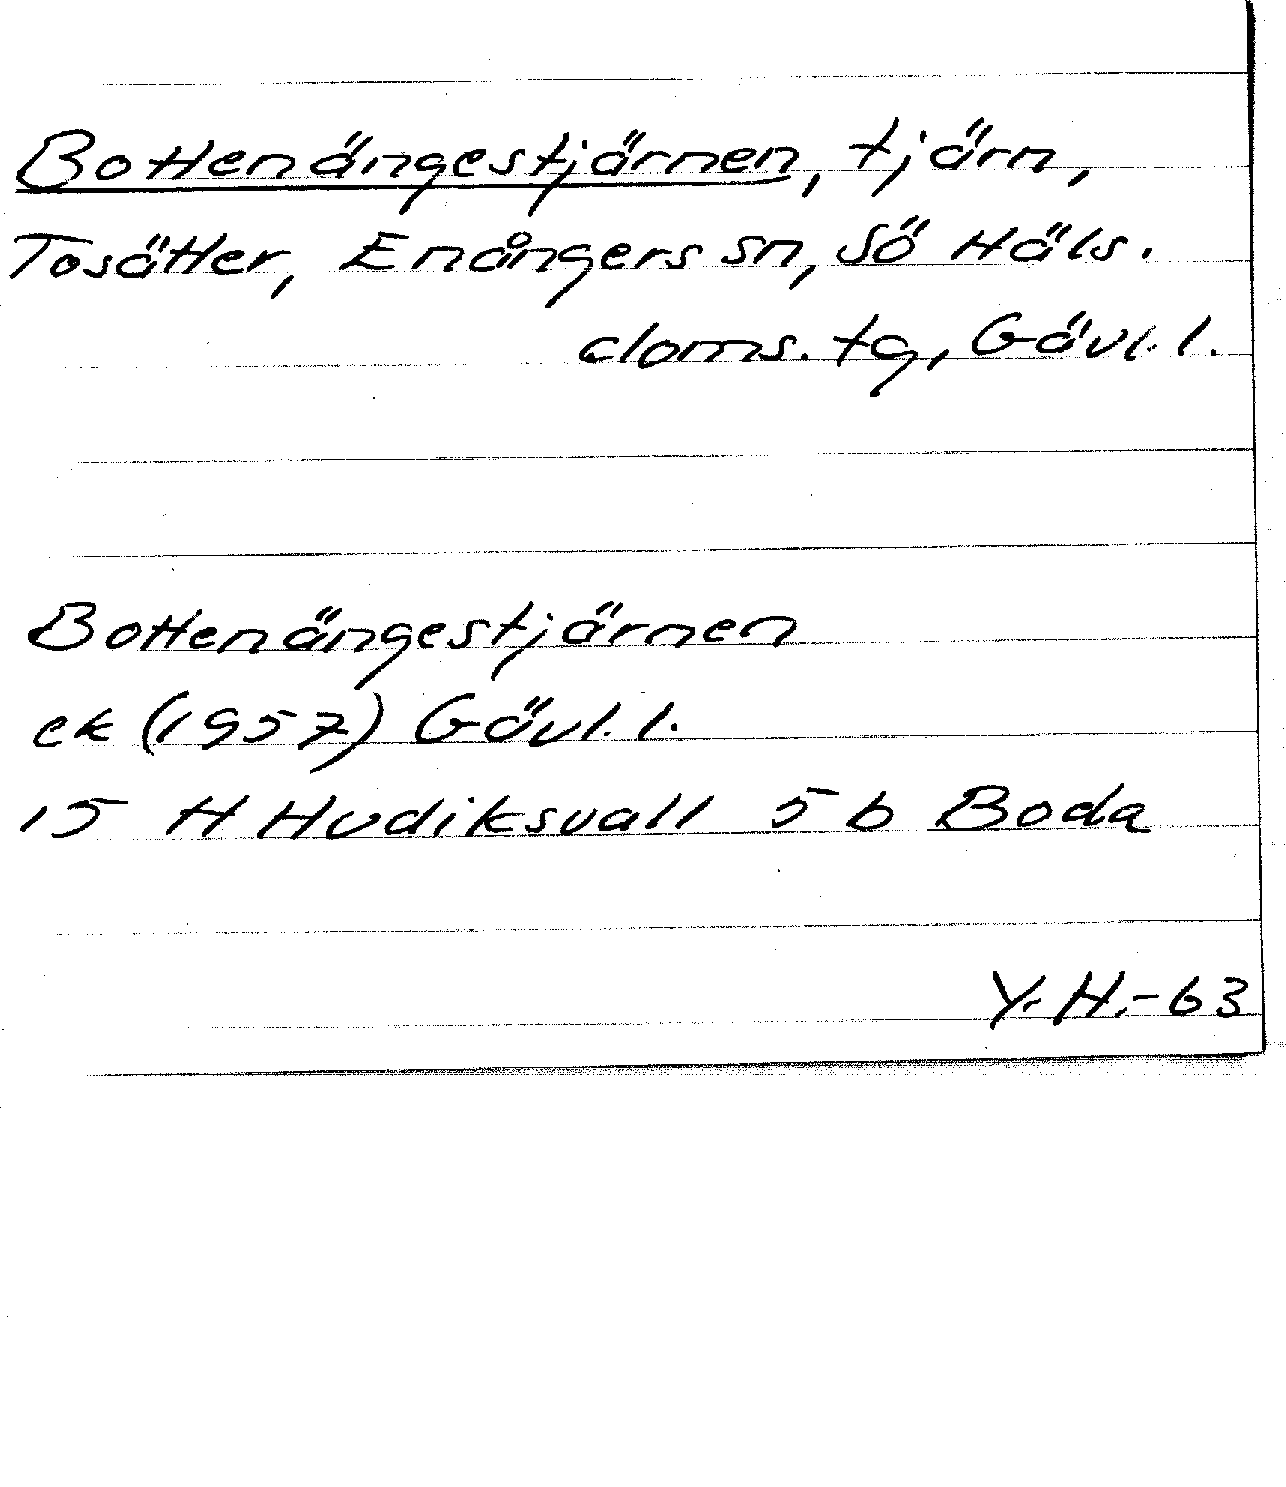 Bottenängestjärnen, tjärn,
Tosätter, Enångers sn, Sö Häls.
doms. tg, Gävl. l.
Bottenängestjärnen
ek (1957) Gävl. l.
15 H Hudiksvall 5 b Boda
Y. H. - 63